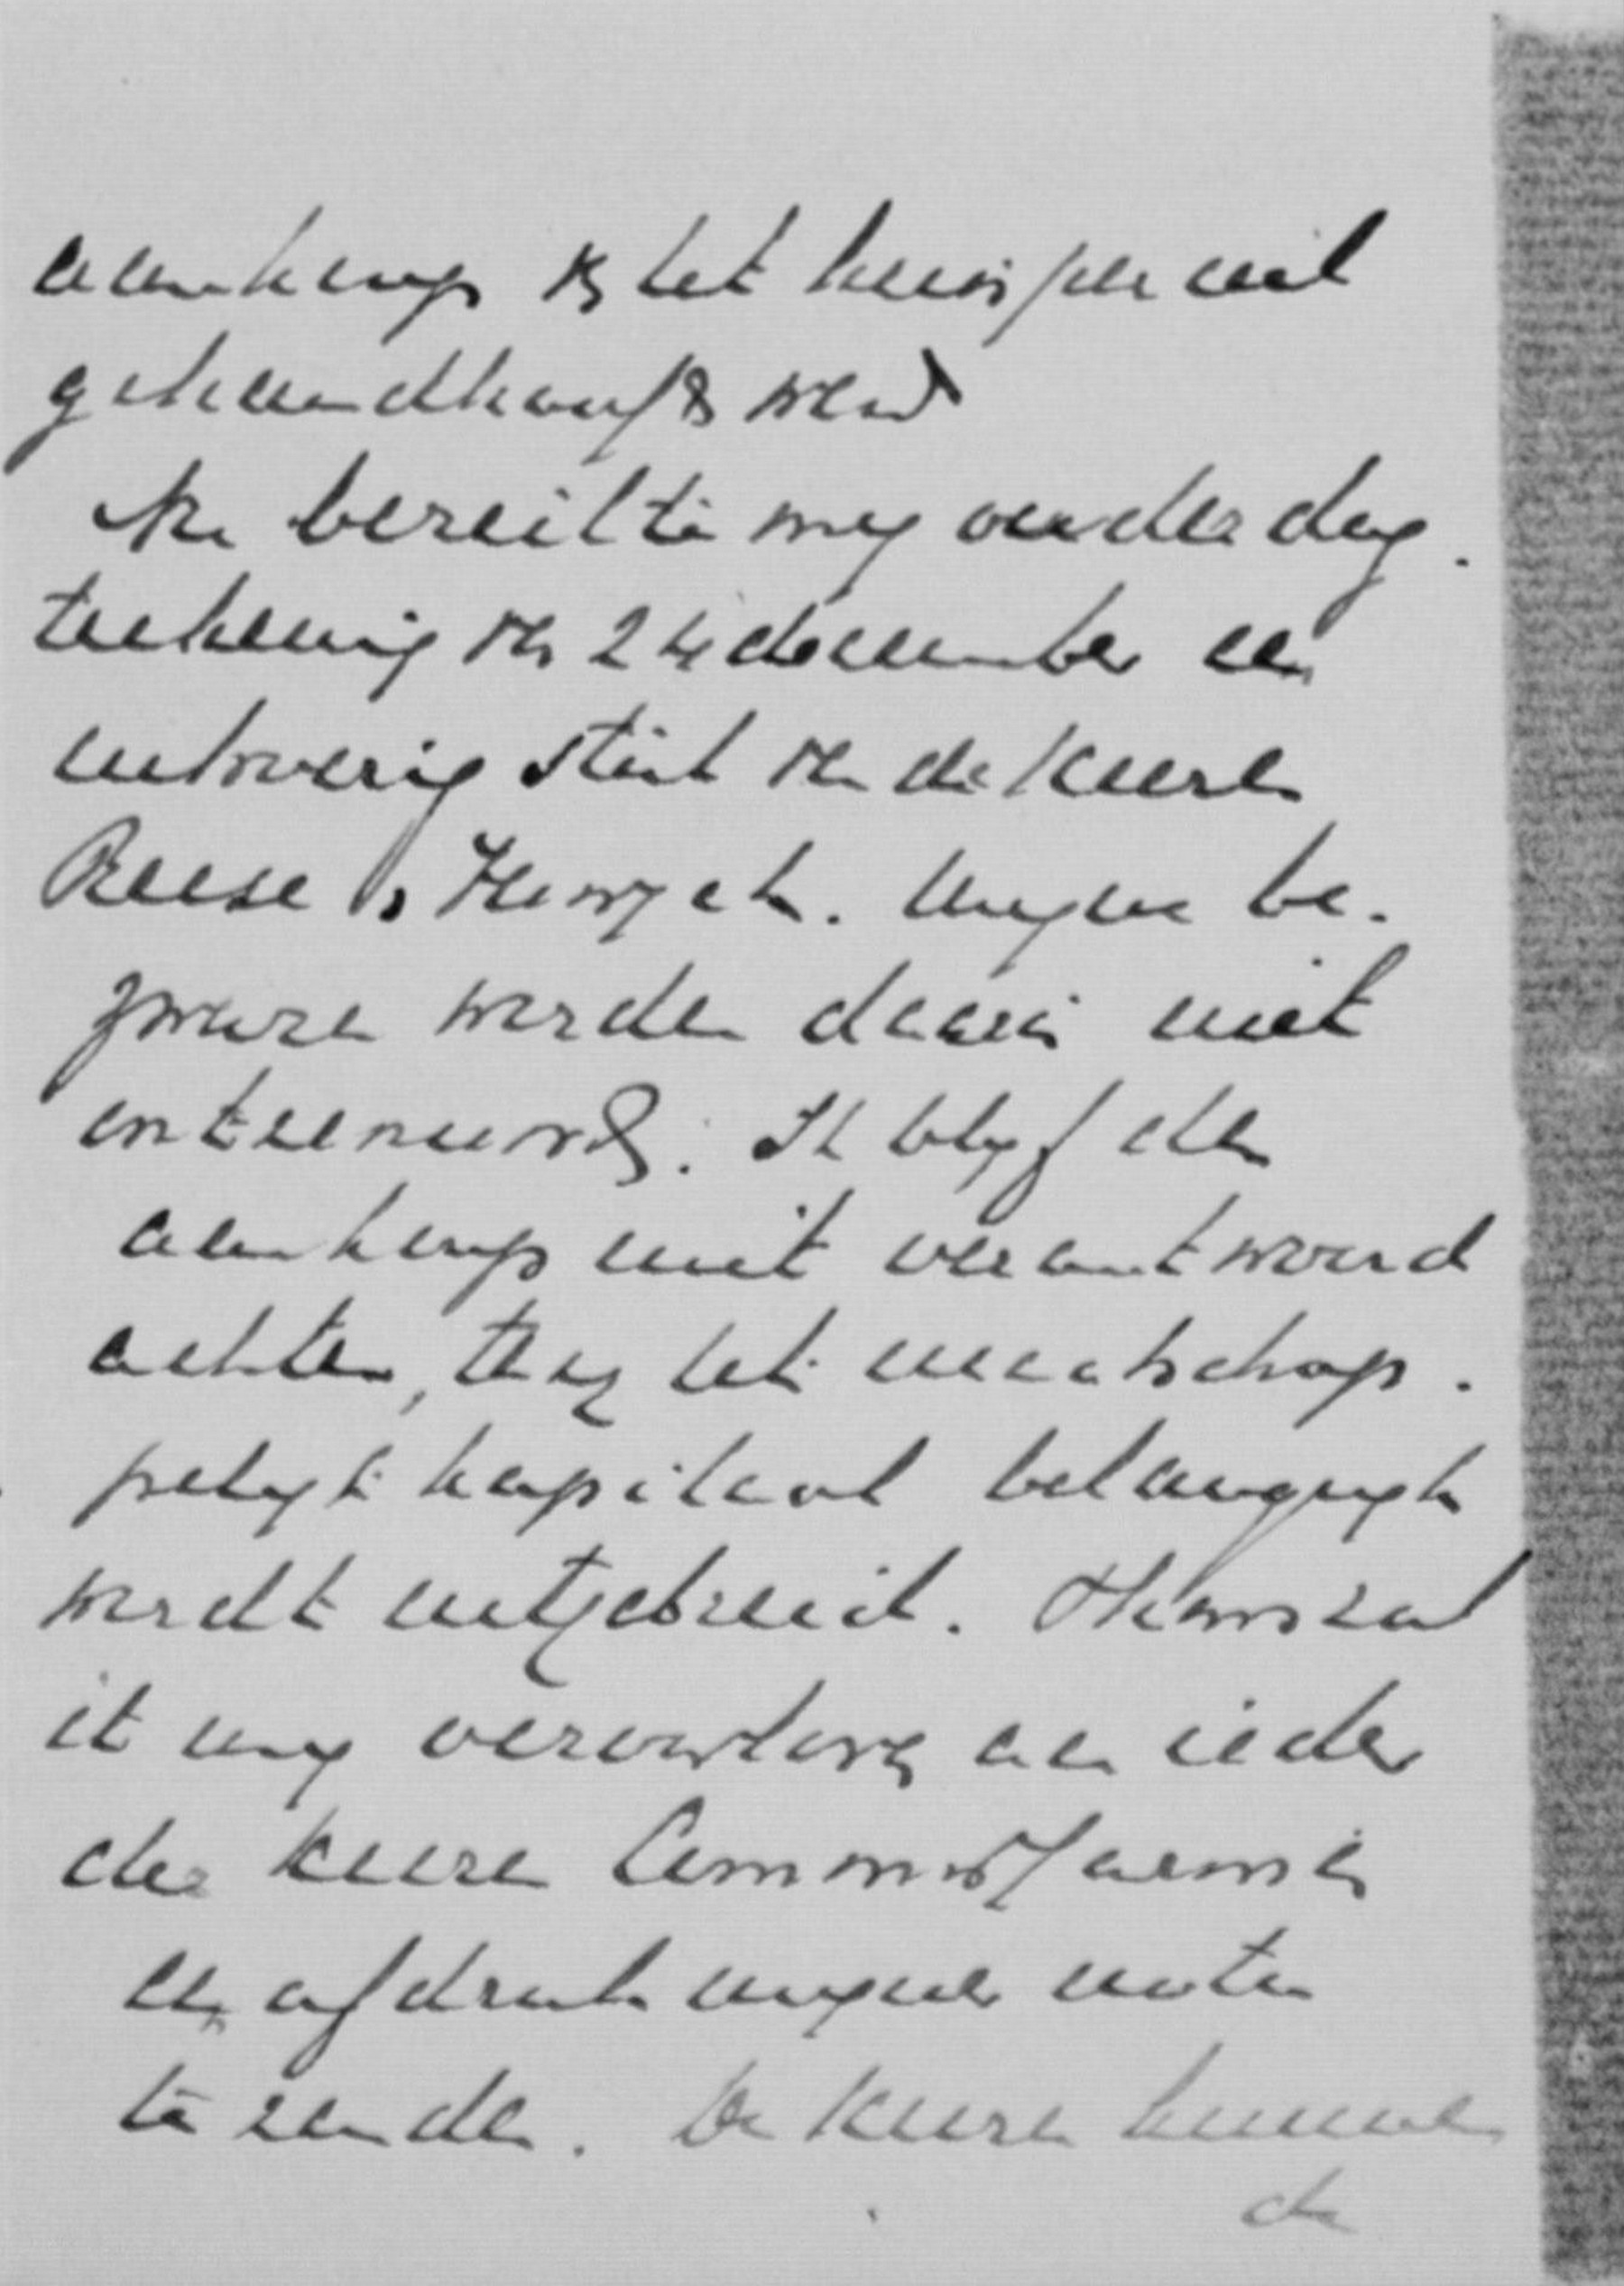 aankoop is het huispand
gehandhaafd werd
Me bereikte mij onder dag.
teekening v. 24 december een
uitvoerig stuk v. de heeren
Reese & Heinzen. Mijne be.
zwaren werden daarin niet
ontzenuwd. Ik blijf den
aankoop niet verantwoord
achten, tenzij het maatschap.
pelijk kapitaal belangrijk
wordt uitgebreid. Thans zal
ik mij veroorloven aan ieder
der heeren Commissarissen
een afdruk mijner nota
te zenden. De heeren kunnen
de